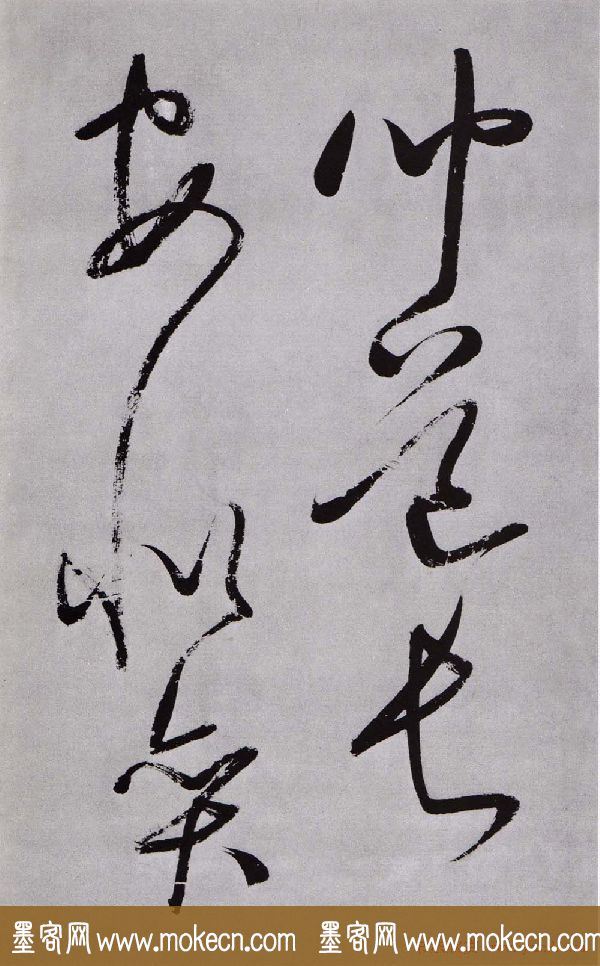 聞道長
安似弈
墨客网 www.mokecn.com 墨客网 www.mokecn.com